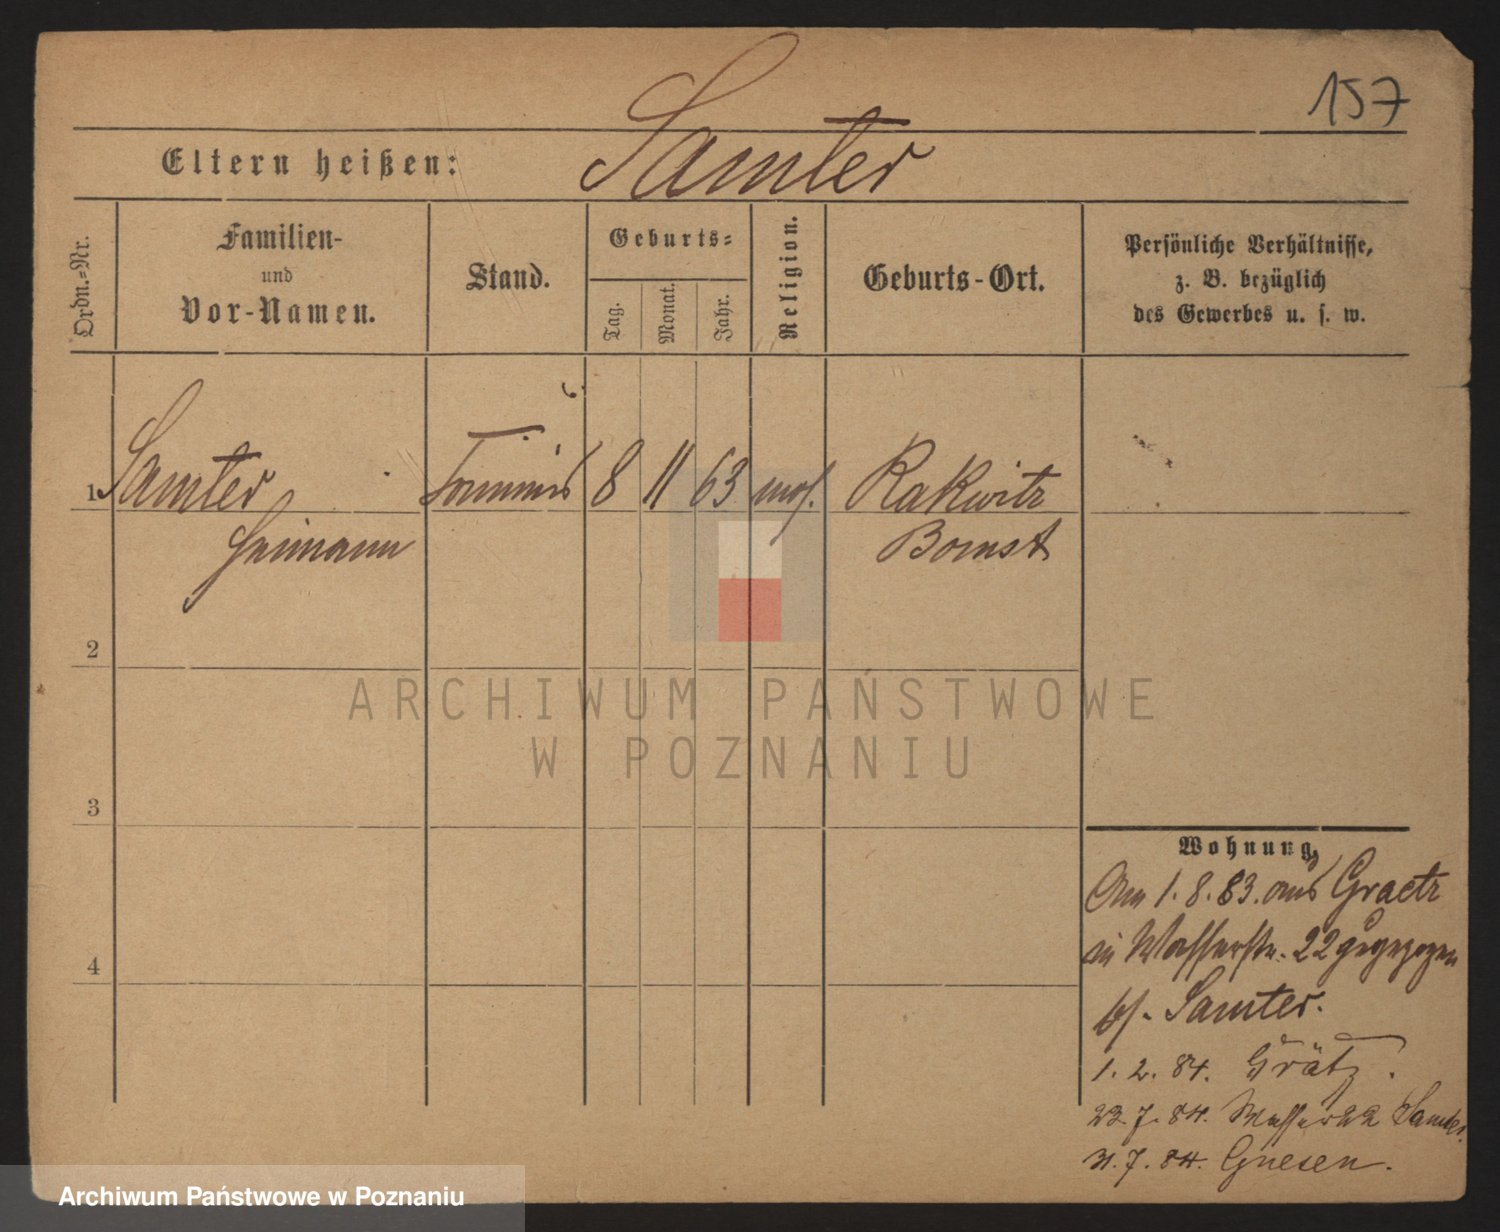 157
Samter
Eltern heißen:
Ordn.=Nr.
Familien-
und
Vor-Namen.
Stand.
Geburts=
Tag.
Monat.
Jahr.
Religion.
Geburts-Ort.
Persönliche Verhältnisse,
z. B. bezüglich
des Gewerbes u. s. w.
1 Samter 8 11 63 mos. Rakwitz
Heimann Bomst
2
ARCHIWUM PAŃSTWOWE
W POZNANIU
3
4
Wohnung.
Am 1. 8. 83. aus Graetz
in Wasserstr. 22 gezogen
bei Samter.
1. 2. 84. Grätz.
23. 7. 84. Wasser 22 Samter.
31. 7. 84. Gnesen.
Archiwum Państwowe w Poznaniu